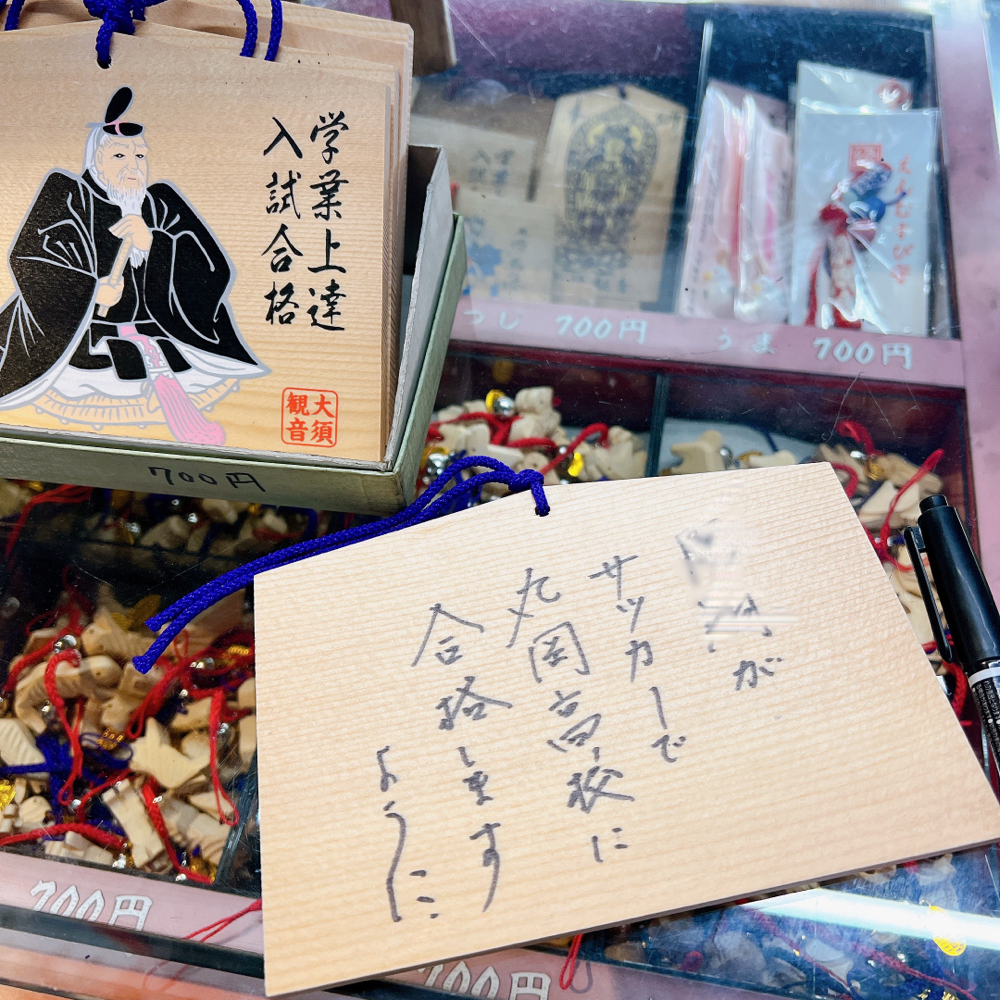 学業上達
入試合格
大須
観音
700円
が
サッカーで
丸岡高校に
合格します
ように
つじ 700円 うま 700円
えんむすび
700円
700円